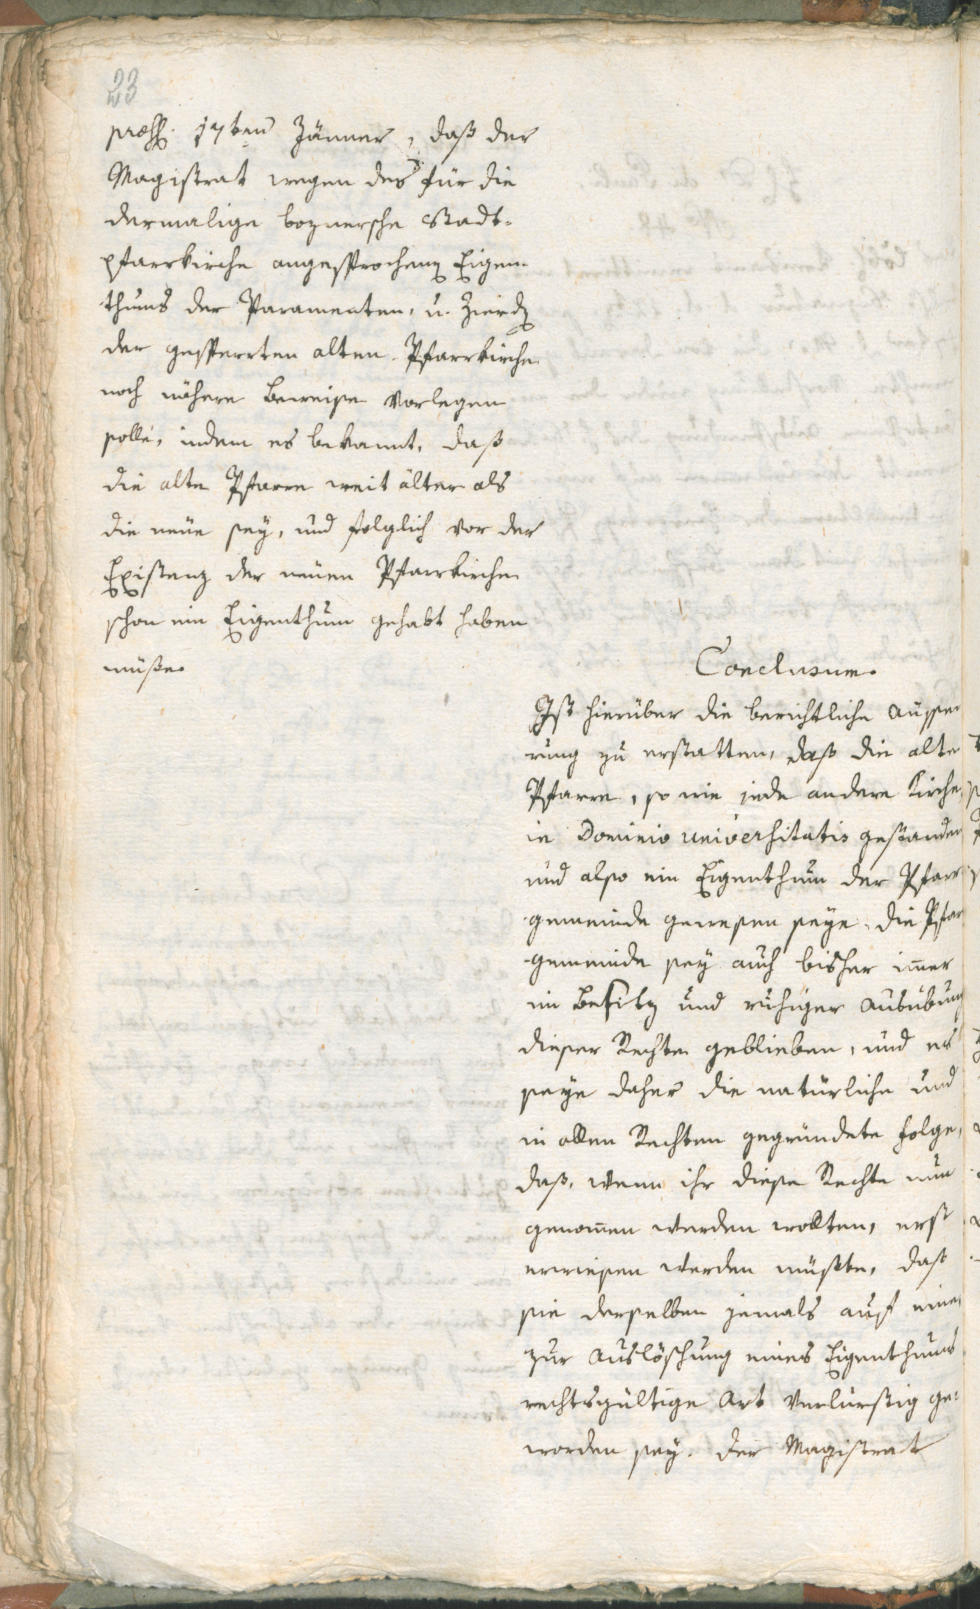 23
præs: 17ten Jänner, daß der
Magistrat wegen des für die
dermalige boznersche Stadt-
pfarrkirche angesprochenen Eigen-
thums der Paramenten, u. Zierden
der gesperrten alten Pfarrkirche
noch nähere Beweise vorlegen
solle, indem es bekannt, daß
die alte Pfarre weit älter als
die neue sey, und folglich vor der
Existenz der neuen Pfarrkirche
schon ein Eigenthum gehabt haben
müße.
Conclusum.
Ist hierüber die berichtliche Äusse-
rung zu erstatten, daß die alte
Pfarre, so wie jede andere Kirche,
in Dominio universitatis gestanden
und also ein Eigenthum der Pfarr-
gemeinde gewesen seye. Die Pfar-
gemeinde sey auch bisher im̄er
im Besitz und ruhiger Ausübung
dieser Rechte geblieben, und es
seye daher die natürliche und
in allen Rechten gegründete Folge,
daß, wenn ihr diese Rechte nun
genom̄en werden wollten, erst
erwiesen werden müßte, daß
sie derselben jemals auf eine
zur Auslöschung eines Eigenthums
rechtsgültige Art verlurstig ge-
worden sey. Der Magistrat